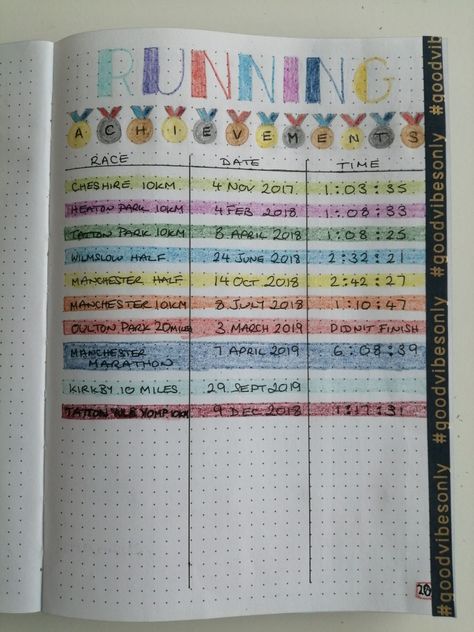 RUNNING
ACHIEVEMENTS
RACE DATE TIME
CHESHIRE 10KM 4 NOV 2017 1:03:35
HEATON PARK 10KM 4 FEB 2018 1:08:33
TATTON PARK 10KM 8 APRIL 2018 1:08:25
WILMSLOW HALF 24 JUNE 2018 2:32:21
MANCHESTER HALF 14 OCT 2018 2:42:27
MANCHESTER 10KM 8 JULY 2018 1:10:47
OULTON PARK 20MILES 3 MARCH 2019 DIDN'T FINISH
MANCHESTER MARATHON 7 APRIL 2019 6:08:39
KIRKBY 10 MILES 29 SEPT 2019
TATTON YOMP 10KM 9 DEC 2018 1:17:31
#goodvibesonly
#goodvibesonly
#goodvibesonly
#goodvibesonly